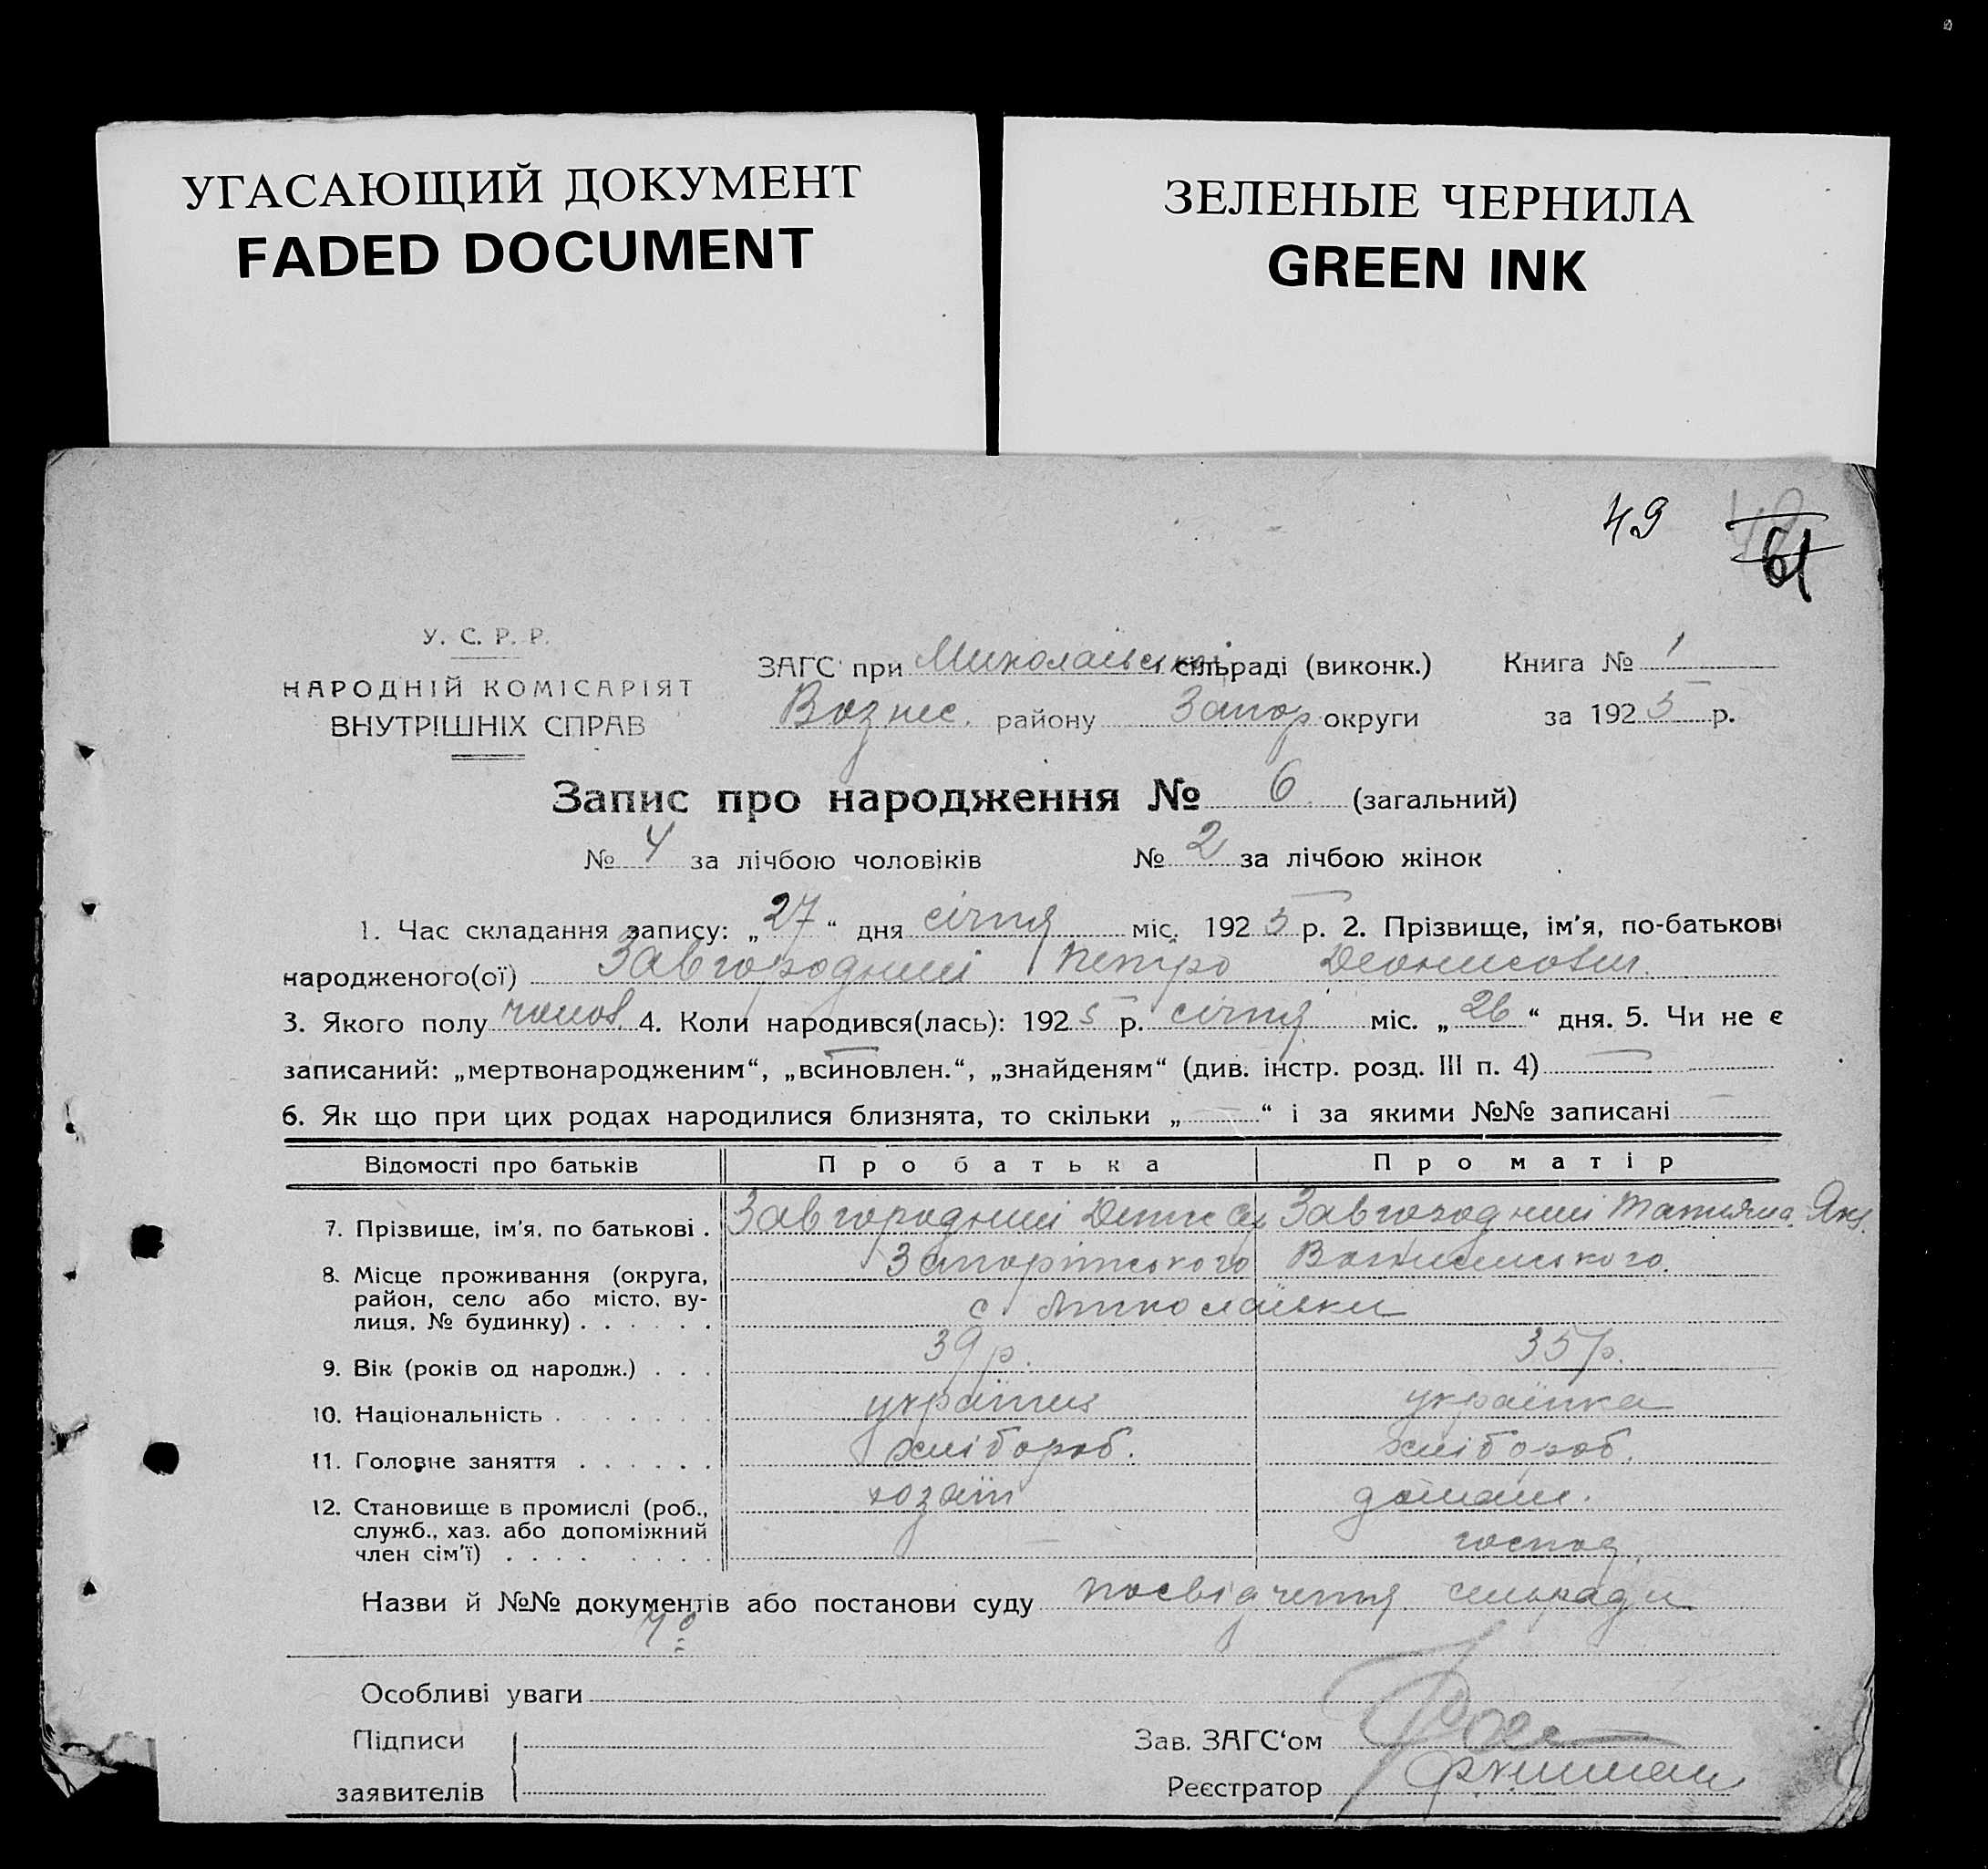 УГАСАЮЩИЙ ДОКУМЕНТ
FADED DOCUMENT
ЗЕЛЕНЫЕ ЧЕРНИЛА
GREEN INK
49
61
У. С. Р. Р.
НАРОДНІЙ КОМІСАРІЯТ
ВНУТРІШНІХ СПРАВ
ЗАГС при Миколаівській сільраді (виконк.) Книга № 1
Вознес. району Запор округи за 1925 р.
Запис про народження № 6 (загальний)
№ 4 за лічбою чоловіків № 2 за лічбою жінок
1. Час складання запису: „27“ дня січня міс. 1925 р. 2. Прізвище, ім'я, по-батькові
народженого(ої) Завгородний Петро
3. Якого полу чолов. 4. Коли народився(лась): 1925 р. січня міс. „26“ дня. 5. Чи не є
записаний: „мертвонародженим“, „всиновлен.“, „знайденям“ (див. інстр. розд. III п. 4) —
6. Як що при цих родах народилися близнята, то скільки „—“ і за якими №№ записані —
Відомості про батьків Про батька Про матір
7. Прізвище, ім'я, по батькові . Завгородний Завгородний Татьяна Як.
8. Місце проживання (округа, Запоріжського
район, село або місто, ву- с Миколаївки
лиця, № будинку) . . . . . .
9. Вік (років од народж.) . . . 39 р. 35 р.
10. Національність . . . . . . . українец українка
11. Головне заняття . . . . . . хлібороб. хлібороб.
12. Становище в промислі (роб., хозяїн домаш.
служб., хаз. або допоміжний — господ.
член сім'ї) . . . . . . . . .
Назви й №№ документів або постанови суду посвідчення сільради
Особливі уваги
Підписи
заявителів
Зав. ЗАГС'ом
Реєстратор